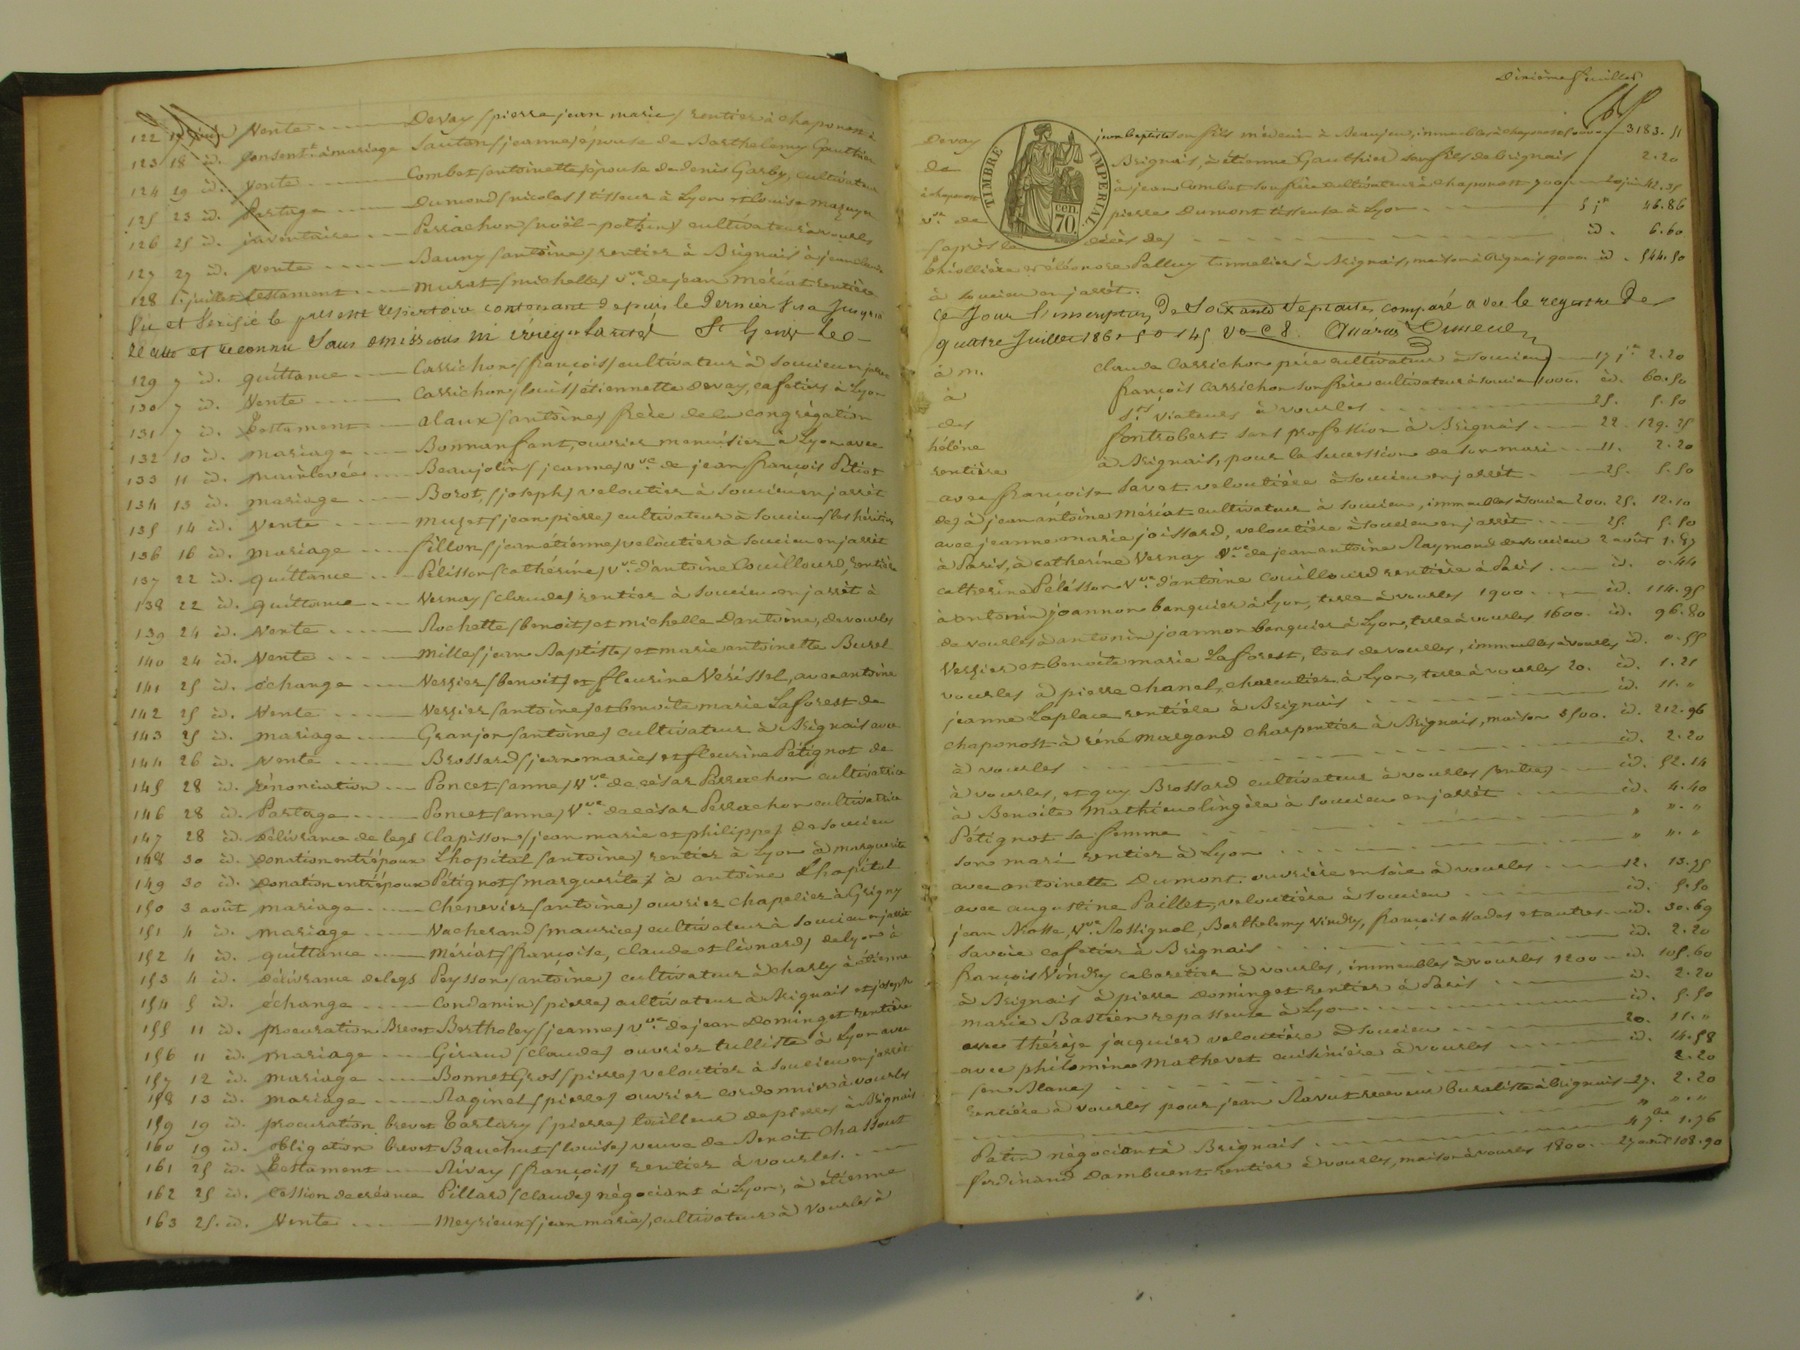 122 17 juin Vente Devay (pierre jean marie) rentier à chaponost à
123 18 id. Consent.t à mariage Sauton (jeanne) épouse de Barthelemy Gauthier
124 19 id. Vente Combet (antoinette) épouse de Denis Garby, cultivateur
125 23 id. Partage Dumond (nicolas) tisseur à Lyon et Louise
126 25 id. inventaire Perrachon (noël-pothin) cultivateur à vourles
127 27 id. Vente Bauny (antoine) rentier à Brignais à jean claude
128 1 juillet testament Murat (michelle) V.ve de jean Mériat rentière
Vu et Vérifié le présent répertoire contenant depuis le Dernier Visa Jusqu'à
et reconnu Sans omissions ni irrégularités St Genis le
129 7 id. quittance Carrichon (françois) cultivateur à Soucieu en jarret
130 7 id. Vente Carrichon (louis) étiennette devay, cafetier à Lyon
131 7 id. Testament alaux (antoine) frère de la congrégation
132 10 id. Mariage Bonnanfant, ouvrier menuisier à Lyon avec
133 11 id. Mainlevée Beaujolin (jeanne) V.ve de jean françois
134 13 id. Mariage Borot (joseph) veloutier à Soucieu en jarrêt
135 14 id. Vente Muzet (jean pierre) cultivateur à Soucieu (les héritiers
136 16 id. Mariage fillon (jean étienne) veloutier à Soucieu en jarrêt
137 22 id. quittance Pélisson (catherine) V.ve d'antoine Couillourd, rentière
138 22 id. quittance Vernay (claude) rentier à Soucieu en jarrêt à
139 24 id. Vente Rochette (benoit) et michelle Dantoine, de vourles
140 24 id. Vente Mille (jean Baptiste) et marie antoinette Burel
141 25 id. échange Verzier (benoit) et fleurine Vérissel, avec antoine
142 25 id. Vente Verzier (antoine) et benoite marie Laforest de
143 25 id. Mariage Granjon (antoine) cultivateur à Brignais avec
144 26 id. Vente Brossard (jean marie) et fleurine Pétignot de
145 28 id. rénonciation Poncet (anne) V.ve de césar Perrachon cultivatrice
146 28 id. Partage Poncet (anne) V.ve de césar Perrachon cultivatrice
147 28 id. Délivrance de legs Clapisson (jean marie et philippe) de Soucieu
148 30 id. Donation entrépoux Lhopital (antoine) rentier à Lyon à marguerite
149 30 id. Donation entrépoux Pétignot (marguerite) à antoine Lhopital
150 3 août Mariage Chenevier (antoine) ouvrier chapelier à Grigny
151 4 id. Mariage Vacherand (maurice) cultivateur à Soucieu en jarrêt
152 4 id. quittance Mériat (françoise, claude et léonard) de Lyon à
153 4 id. délivrance de legs Peysson (antoine) cultivateur à charly à étienne
154 5 id. échange Condamin (pierre) cultivateur à Brignais et joseph
155 11 id. procuration Brevet Bertholey (jeanne) V.ve de jean Dominget rentière
156 11 id. Mariage Giraud (claude) ouvrier tulliste à Lyon avec
157 12 id. Mariage Bonnet Gros (pierre) veloutier à Soucieu en jarrêt
158 13 id. Mariage Raginel (pierre) ouvrier cordonnier à vourles
159 19 id. procuration brevet Tartary (pierre) tailleur de pierres à Brignais
160 19 id. obligation brevet Bauchut (louise) veuve de Benoit Chabout
161 25 id. Testament Rivay (françois) rentier à vourles
162 25 id. Cession de créance Pillard (claude) négociant à Lyon, à étienne
163 25. id. Vente Meyrieux (jean marie), cultivateur à Vourles à
Dixième feuillet
Devay jean baptiste son fils médecin à Beaujeu, immeubles à chaponost 3183.51
de Brignais, à étienne Gauthier son fils de brignais 2.20
à chaponost à jean Combet son frère cultivateur à chaponost 700 20 juin 42.35
V.ve de pierre Dumont tisseuse à Lyon 5 j.t 46.86
(après le décès de) id. 6.60
et éléonore Palluy tonnelier à Brignais, maison à Brignais 9000 id. 544.50
à Soucieu en jarrêt.
TIMBRE IMPERIAL
70 cen.
Ce Jour l'inscription De Soixante Sept actes comparé avec le registre De
quatre Juillet 186 f.o 145 V.o C 8.
à m. Claude Carrichon père cultivateur à Soucieu 17 j.t 2.20
à françois Carrichon son frère cultivateur à Soucieu 1000. id. 60.50
des S.ts viateurs à vourles 25. 5.50
hélène fontrobert sans profession à Brignais 22. 129.25
rentière à Brignais, pour la succession de son mari 11. 2.20
avec françoise Savet veloutière à Soucieu en jarrêt 25. 5.50
de) à jean antoine Mériat cultivateur à Soucieu, immeubles à Soucieu 200. 25. 12.10
avec jeanne marie joissard, veloutière à Soucieu en jarrêt 25. 5.50
à Paris, à catherine Vernay V.ve de jean antoine Raymond de Soucieu 2 août 1.87
catherine Pélisson V.ve d'antoine couillourd rentière à Paris id. 0.44
à antonin joannon banquier à Lyon, terre à vourles 1900. id. 114.95
de vourles à antonin joannon banquier à Lyon, terre à vourles 1600. id. 96.80
Verzier et benoite marie Laforest, tous de vourles, immeubles à vourles id. 0.55
vourles à pierre chanel, charcutier à Lyon, terre à vourles 20. id. 1.21
jeanne Laplace rentière à Brignais id. 11."
chaponost à réné Margand charpentier à Brignais, maison 3500. id. 212.96
à vourles id. 2.20
à vourles, et guy Brossard cultivateur à vourles (entre) id. 52.14
à Benoite Mathieu lingère à Soucieu en jarrêt id. 4.40
Pétignot sa femme " "."
son mari rentier à Lyon " "."
avec antoinette Dumont ouvrière en soie à vourles 12. 13.75
avec augustine Paillet, veloutière à Soucieu id. 5.50
jean Matte, V.ve Rossignol, Barthelemy Vindry, françois assadas et autres id. 30.69
Savoie cafetier à Brignais id. 2.20
françois Vindry cabaretier à vourles, immeubles à vourles 1200 id. 105.60
à Brignais à pierre Dominget rentier à Paris id. 2.20
marie Bastien repasseuse à Lyon id. 5.50
avec thérèse jacquier veloutière à Soucieu 20. 11."
avec philomine Mathevet cuisinière à vourles id. 14.58
(en Blanc) 2.20
rentière à vourles pour jean Ravut receveur buraliste à brignais 27. 2.20
" "."
Patin négociant à Brignais 4 7bre 1.76
ferdinand Dambuent rentier à vourles, maison à vourles 1800. 27 août 108.90